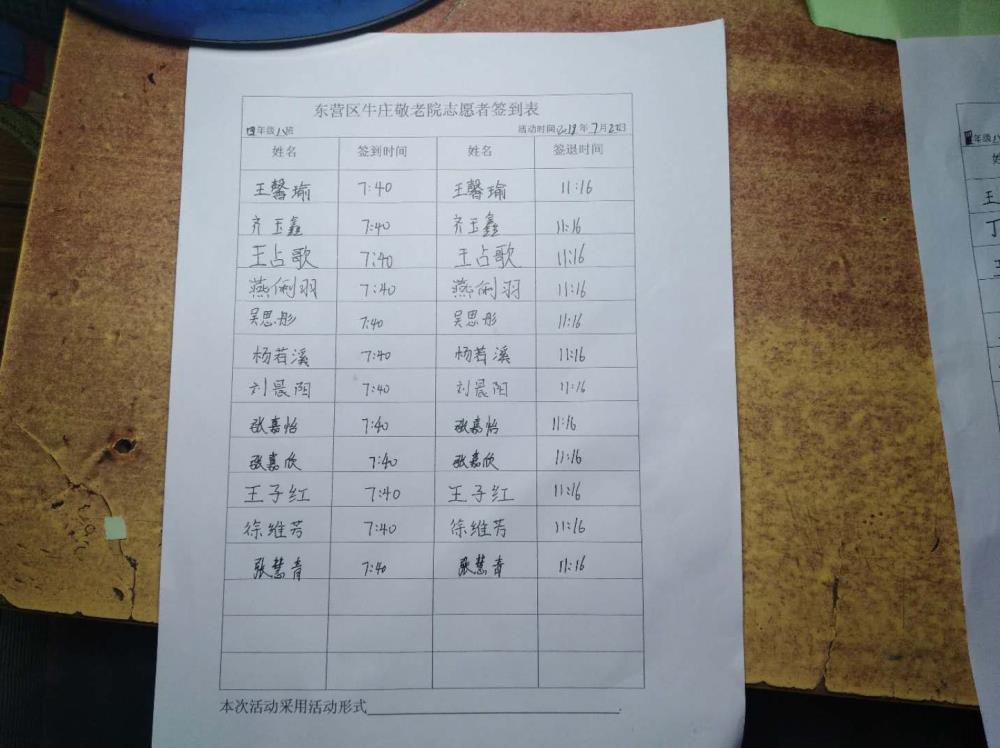 东营区牛庄敬老院志愿者签到表
年级 班 活动时间 年7月 日
姓名 签到时间 姓名 签退时间
王馨瑜 7:40 王馨瑜 11:16
齐玉鑫 7:40 齐玉鑫 11:16
王占歌 7:40 王占歌 11:16
燕俐羽 7:40 燕俐羽 11:16
吴思彤 7:40 吴思彤 11:16
杨若溪 7:40 杨若溪 11:16
刘晨阳 7:40 刘晨阳 11:16
张嘉怡 7:40 张嘉怡 11:16
张嘉欣 7:40 张嘉欣 11:16
王子红 7:40 王子红 11:16
徐维芳 7:40 徐维芳 11:16
张慧青 7:40 张慧青 11:16
本次活动采用活动形式
年级